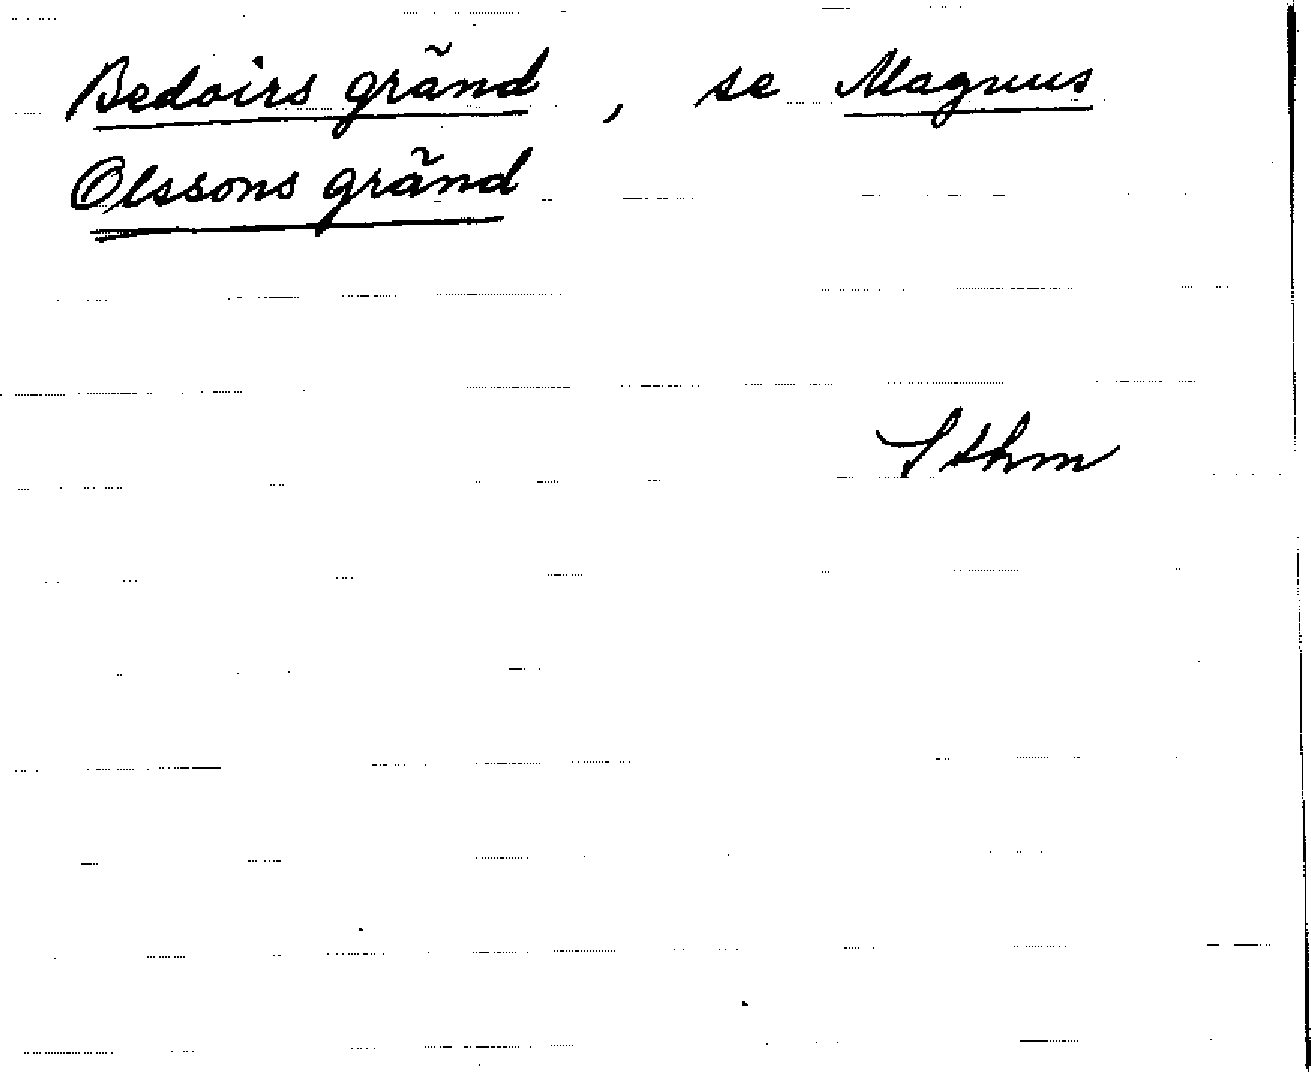 Bedoirs gränd, se Magnus
Olssons gränd
Sthm